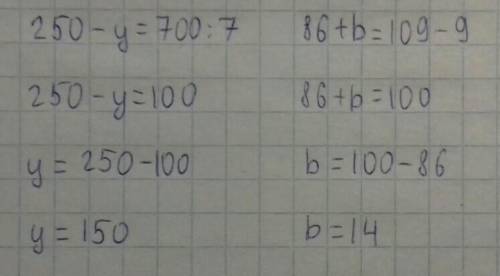 250-y=700:7
250-y=100
y=250-100
y=150
86+b=109-9
86+b=100
b=100-86
b=14